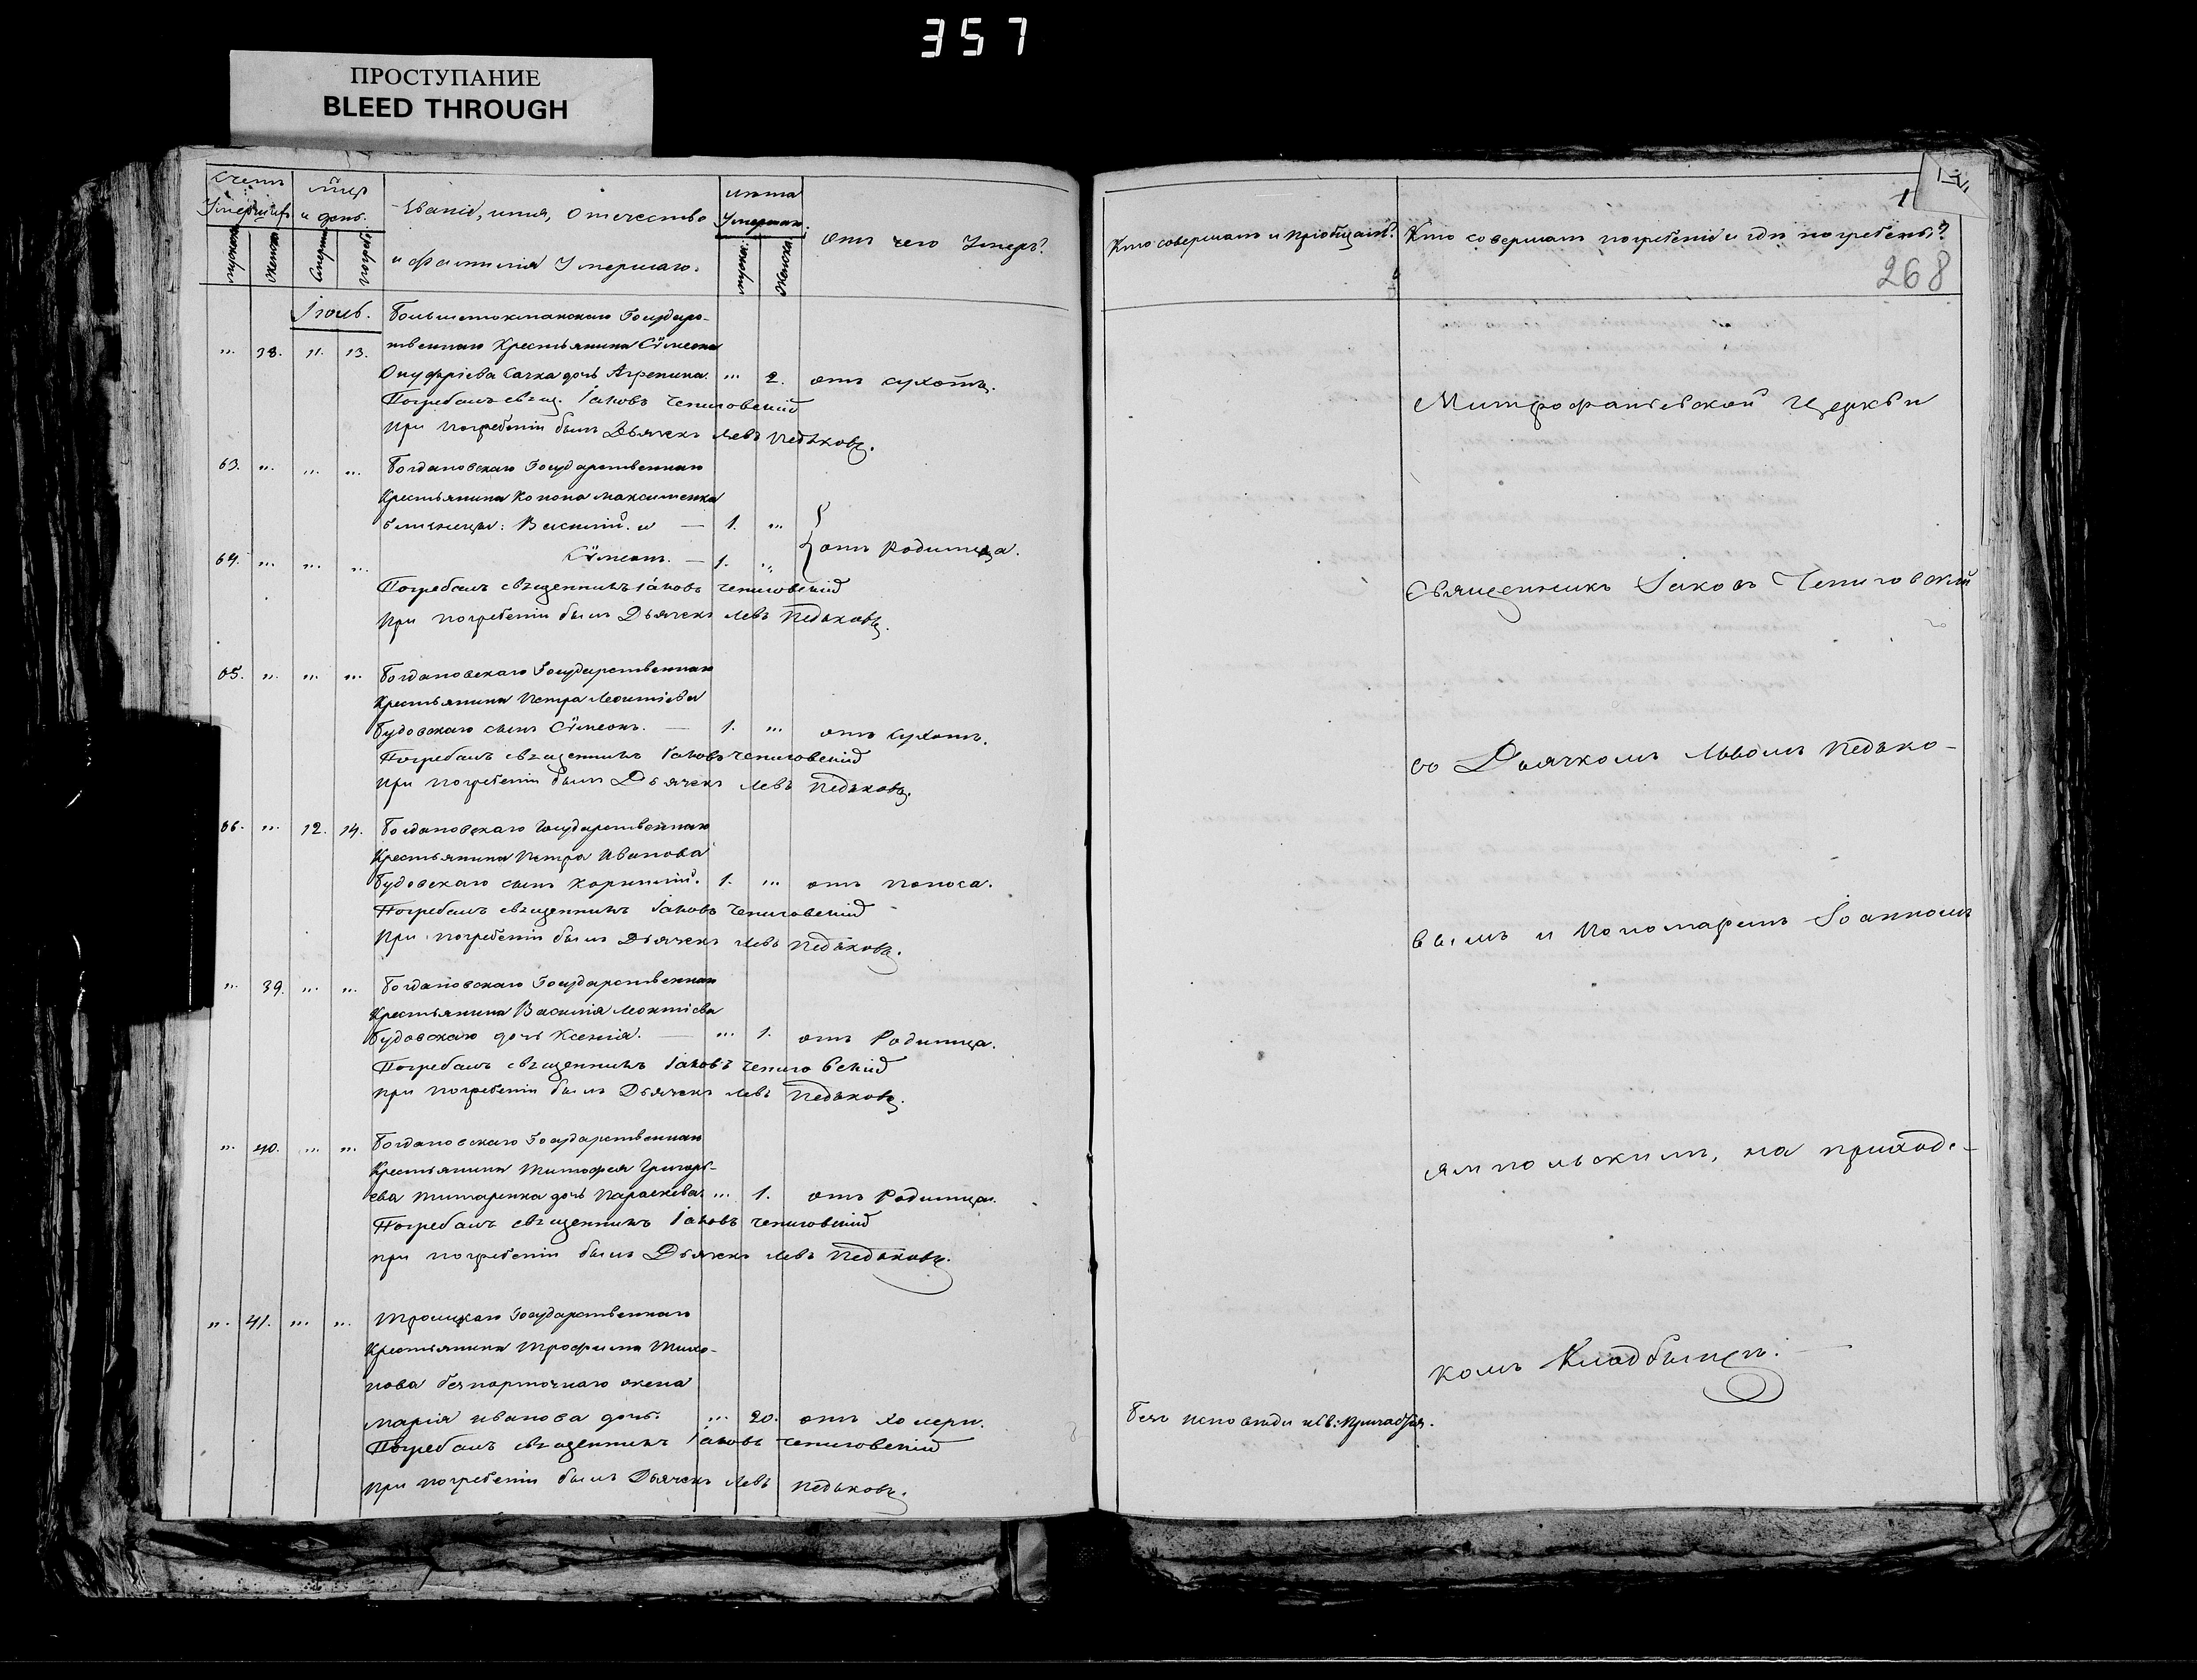 357
ПРОСТУПАНИЕ
BLEED THROUGH
Счетъ Умершихъ
мужеска
женска
м-цъ и день
смерти
погреб.
Званіе, имя, отечество
и фамилія Умершаго.
лѣта Умершаго
мужес.
женска
отъ чего Умеръ?
Іюль.
Большетокмакскаго Государ-
". 38. 11. 13. ственнаго Крестьянина Сѵмеона
Онуфріева Сачка дочь Агрепина. " 2. отъ сухотъ.
Погребалъ свящ. Іаковъ Чепиговскій
При погребеніи былъ Дьячекъ Левъ Педьковъ.
63. " " " Богдановскаго Государственнаго
Крестьянина Конона Максименка
близнецы: Василій и — 1. "
64. " " " Сѵмеонъ. — 1. " отъ Родимца.
Погребалъ священникъ Іаковъ Чепиговскій
При погребеніи былъ Дьячекъ Левъ Педьковъ.
65. " " " Богдановскаго Государственнаго
Крестьянина Петра Леонтіева
Будовскаго сынъ Сѵмеонъ. — 1. " отъ сухотъ.
Погребалъ священникъ Іаковъ Чепиговскій
При погребеніи былъ Дьячекъ Левъ Педьковъ.
66. " 12. 14. Богдановскаго Государственнаго
Крестьянина Петра Иванова
Будовскаго сынъ Корнилій. 1. " отъ поноса.
Погребалъ священникъ Іаковъ Чепиговскій
При погребеніи былъ Дьячекъ Левъ Педьковъ.
" 39. " " Богдановскаго Государственнаго
Крестьянина Василія Леонтіева
Будовскаго дочь Ксенія. — " 1. отъ Родимца.
Погребалъ священникъ Іаковъ Чепиговскій
при погребеніи былъ Дьячекъ Левъ Педьковъ.
" 40. " " Богдановскаго Государственнаго
Крестьянина Тимофея Григорь-
ева Титаренка дочь Параскева. " 1. отъ Родимца.
Погребалъ священникъ Іаковъ Чепиговскій
при погребеніи былъ Дьячекъ Левъ Педьковъ.
" 41. " " Троицкаго Государственнаго
Крестьянина Трофима Тихо-
нова Безпорточнаго жена
Марія Иванова дочь. " 20. отъ холеры.
Погребалъ священникъ Іаковъ Чепиговскій
При погребеніи былъ Дьячекъ Левъ Педьковъ.
Кто совершалъ и пріобщалъ?
Кто совершалъ погребеніе и гдѣ погребены?
268
Митрофаніевской Церкви
Священникъ Іаковъ Чепиговскій
со Дьячкомъ Львомъ Педько-
вымъ и Пономаремъ Іоанномъ
Ямпольскимъ, на приходс-
комъ Кладбищѣ.
Безъ исповѣди и Св: Причастія.